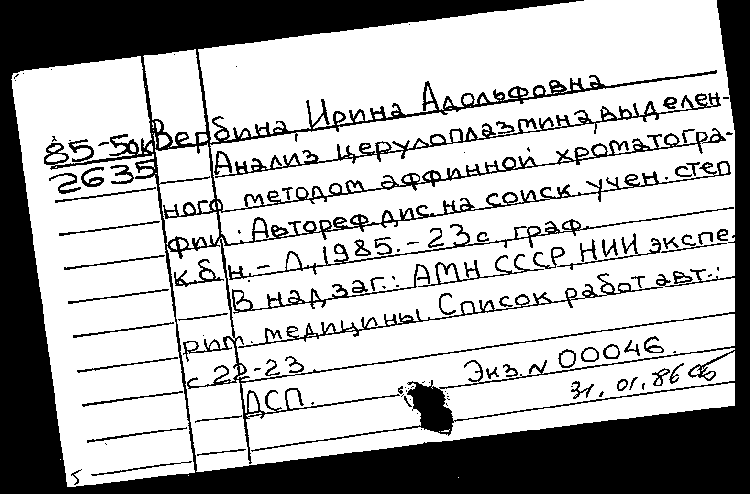 85-5ок Вербина, Ирина Адольфовна
2635 Анализ церулоплазмина, выделен-
ного методом аффинной хроматогра-
фии: Автореф. дис. на соиск. учен. степ
к.б.н. - Л., 1985. - 23с., граф.
В надзаг.: АМН СССР, НИИ экспе-
рим. медицины. Список работ авт.:
с 22-23.
ДСП. Экз. N 00046.
31.01.86
5